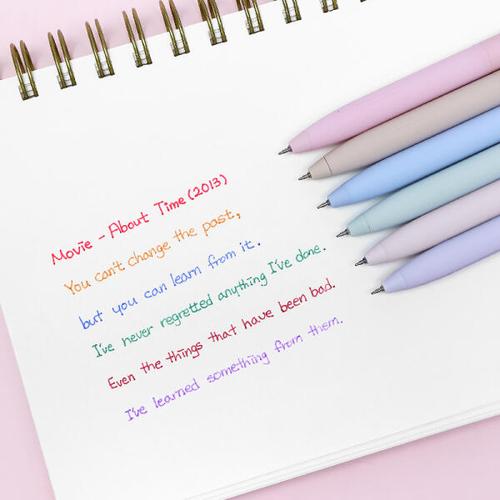 Movie - About Time (2013)
You can't change the past,
but you can learn from it.
I've never regretted anything I've done.
Even the things that have been bad.
I've learned something from them.